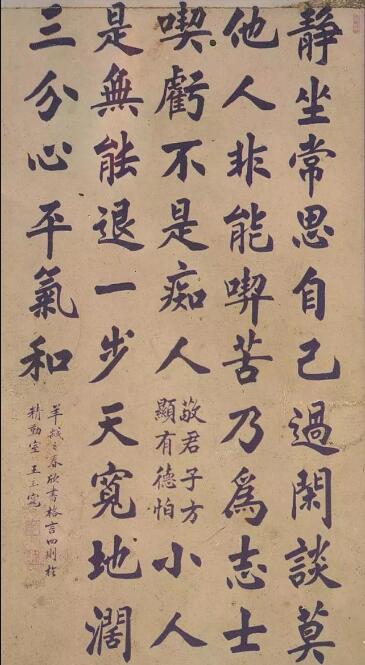 静坐常思自己過閑談莫
他人非能喫苦乃爲志士
喫虧不是痴人敬君子方
顯有德怕小人
是無能退一步天寬地闊
三分心平氣和
春欣書格言四則於
精勤室王玉寬